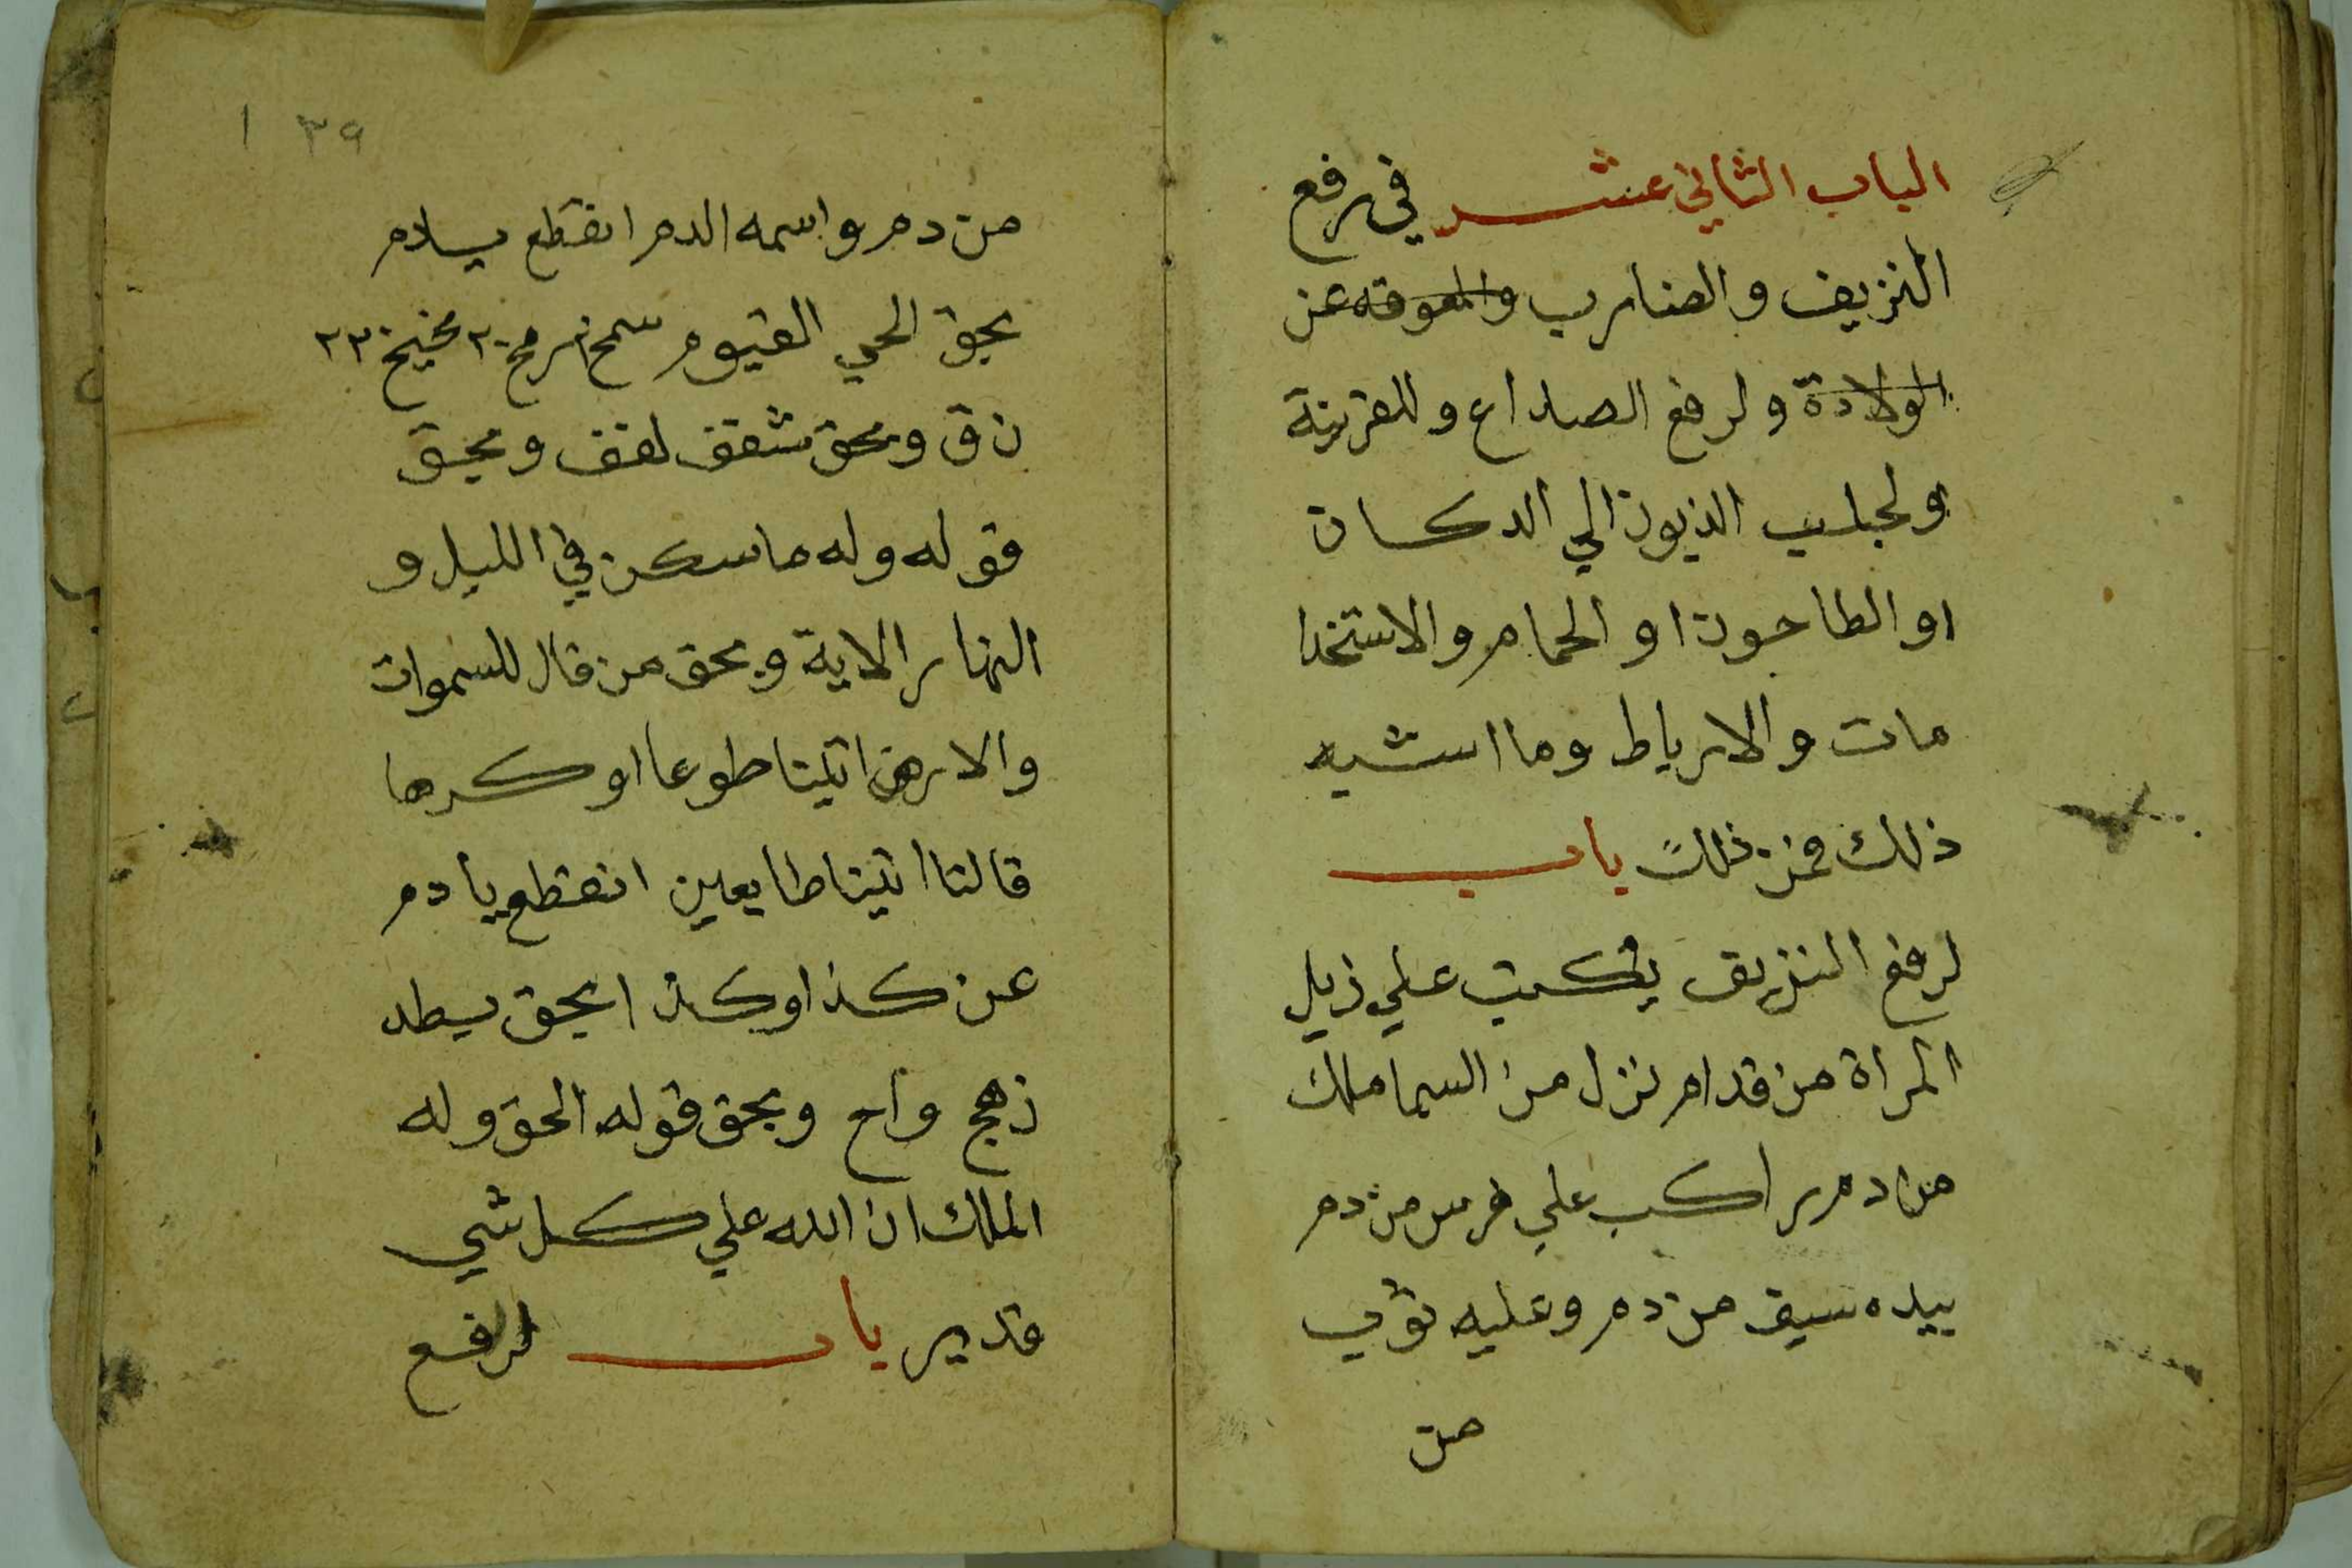 الباب الثاني عشر في رفع
النزيف والضارب والمعوقه عن
الولادة ولرفع الصداع وللقرينة
ولجلب الذبون الي الدكان
او الطاحون او الحمام والاستخدا
مات والارباط وما اشبه
ذلك فمن ذلك باب
لرفع النزيف يكتب علي ذيل
المراة من قدام نزل من السما ملك
من دم راكب علي فرس من دم
بيده سيف من دم وعليه ثوب
من
٣٩ ١
من دم واسمه الدم انقطع يادم
بحق الحي القيوم
ن ق وبحق شقف لقف وبحق
قوله وله ما سكن في الليل و
النهار الاية وبحق من قال للسموات
والارض اتيتا طوعا او كرها
قالتا اتينا طايعين انقطع يا دم
عن كذا وكذا بحق بطد
زهج واح وبحق قوله الحق وله
الملك ان الله علي كل شي
قدير باب لرفع